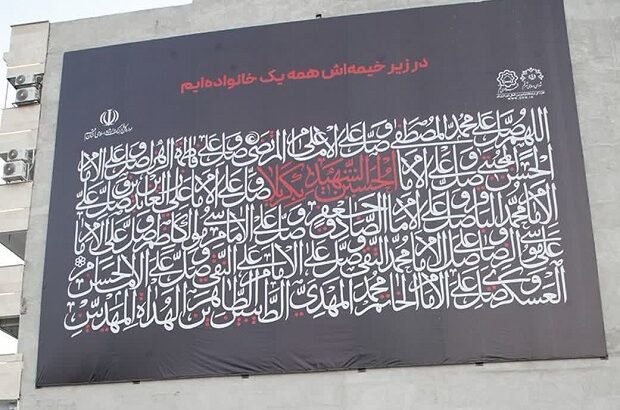 در زیر خیمه‌اش همه یک خانواده‌ایم
اللهم صل علی محمد المصطفی وصل علی الامام المرتضی وصل علی فاطمة الزهراء وصل علی الامام
الحسن المجتبی وصل علی الامام الحسین الشهید بکربلا وصل علی الامام علی العابدین وصل علی
الامام محمد الباقر وصل علی الامام الصادق جعفر وصل علی الامام موسی الکاظم وصل علی الامام
علی موسی الرضا وصل علی الامام محمد التقی وصل علی الامام النقی وصل علی الامام الحسن
العسکری وصل علی الامام الخاتم محمد المهدی الطیبین الطاهرین الهداة المهدیین